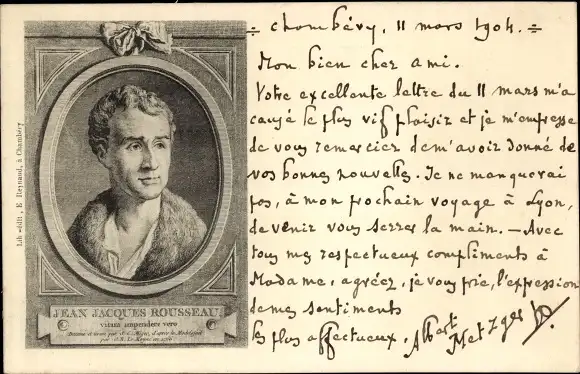 ÷ Chambéry, 11 mars 1904. ÷
Mon bien cher ami.
Votre excellente lettre du 11 mars m'a
causé le plus vif plaisir et je m'empresse
de vous remercier de m'avoir donné de
vos bonnes nouvelles. Je ne manquerai
pas, à mon prochain voyage à Lyon,
de venir vous serrer la main. — Avec
tous mes respectueux compliments à
Madame, agréez, je vous prie, l'expression
de mes sentiments
les plus affectueux. Albert
Metzger
Lib.-édit., E. Reynaud, à Chambéry
JEAN JACQUES ROUSSEAU
vitam impendere vero